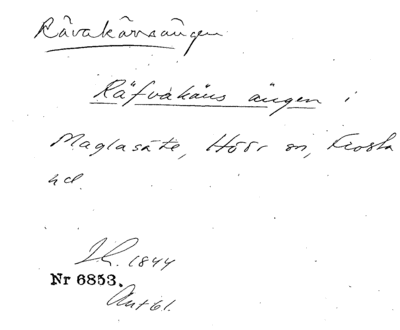 Rävakärrsängen
Räfvakärs ängen i
Maglasäte, Höör sn, Frosta
hd.
1844
Nr 6853.